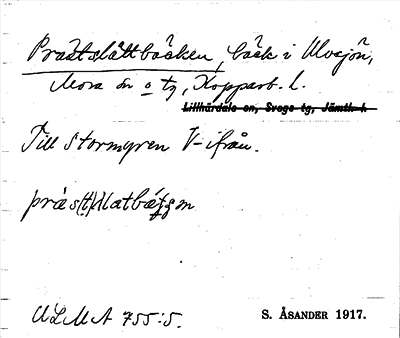 Prästslåttbäcken, bäck i Ulvsjön,
Mora sn o tg, Kopparb. l.
Lillhärdals sn, Svegs tg, Jämtl. l.
Till Stormyren V-ifrån.
präs(t)slatbäṭṣen
ULMA 755:5. S. ÅSANDER 1917.